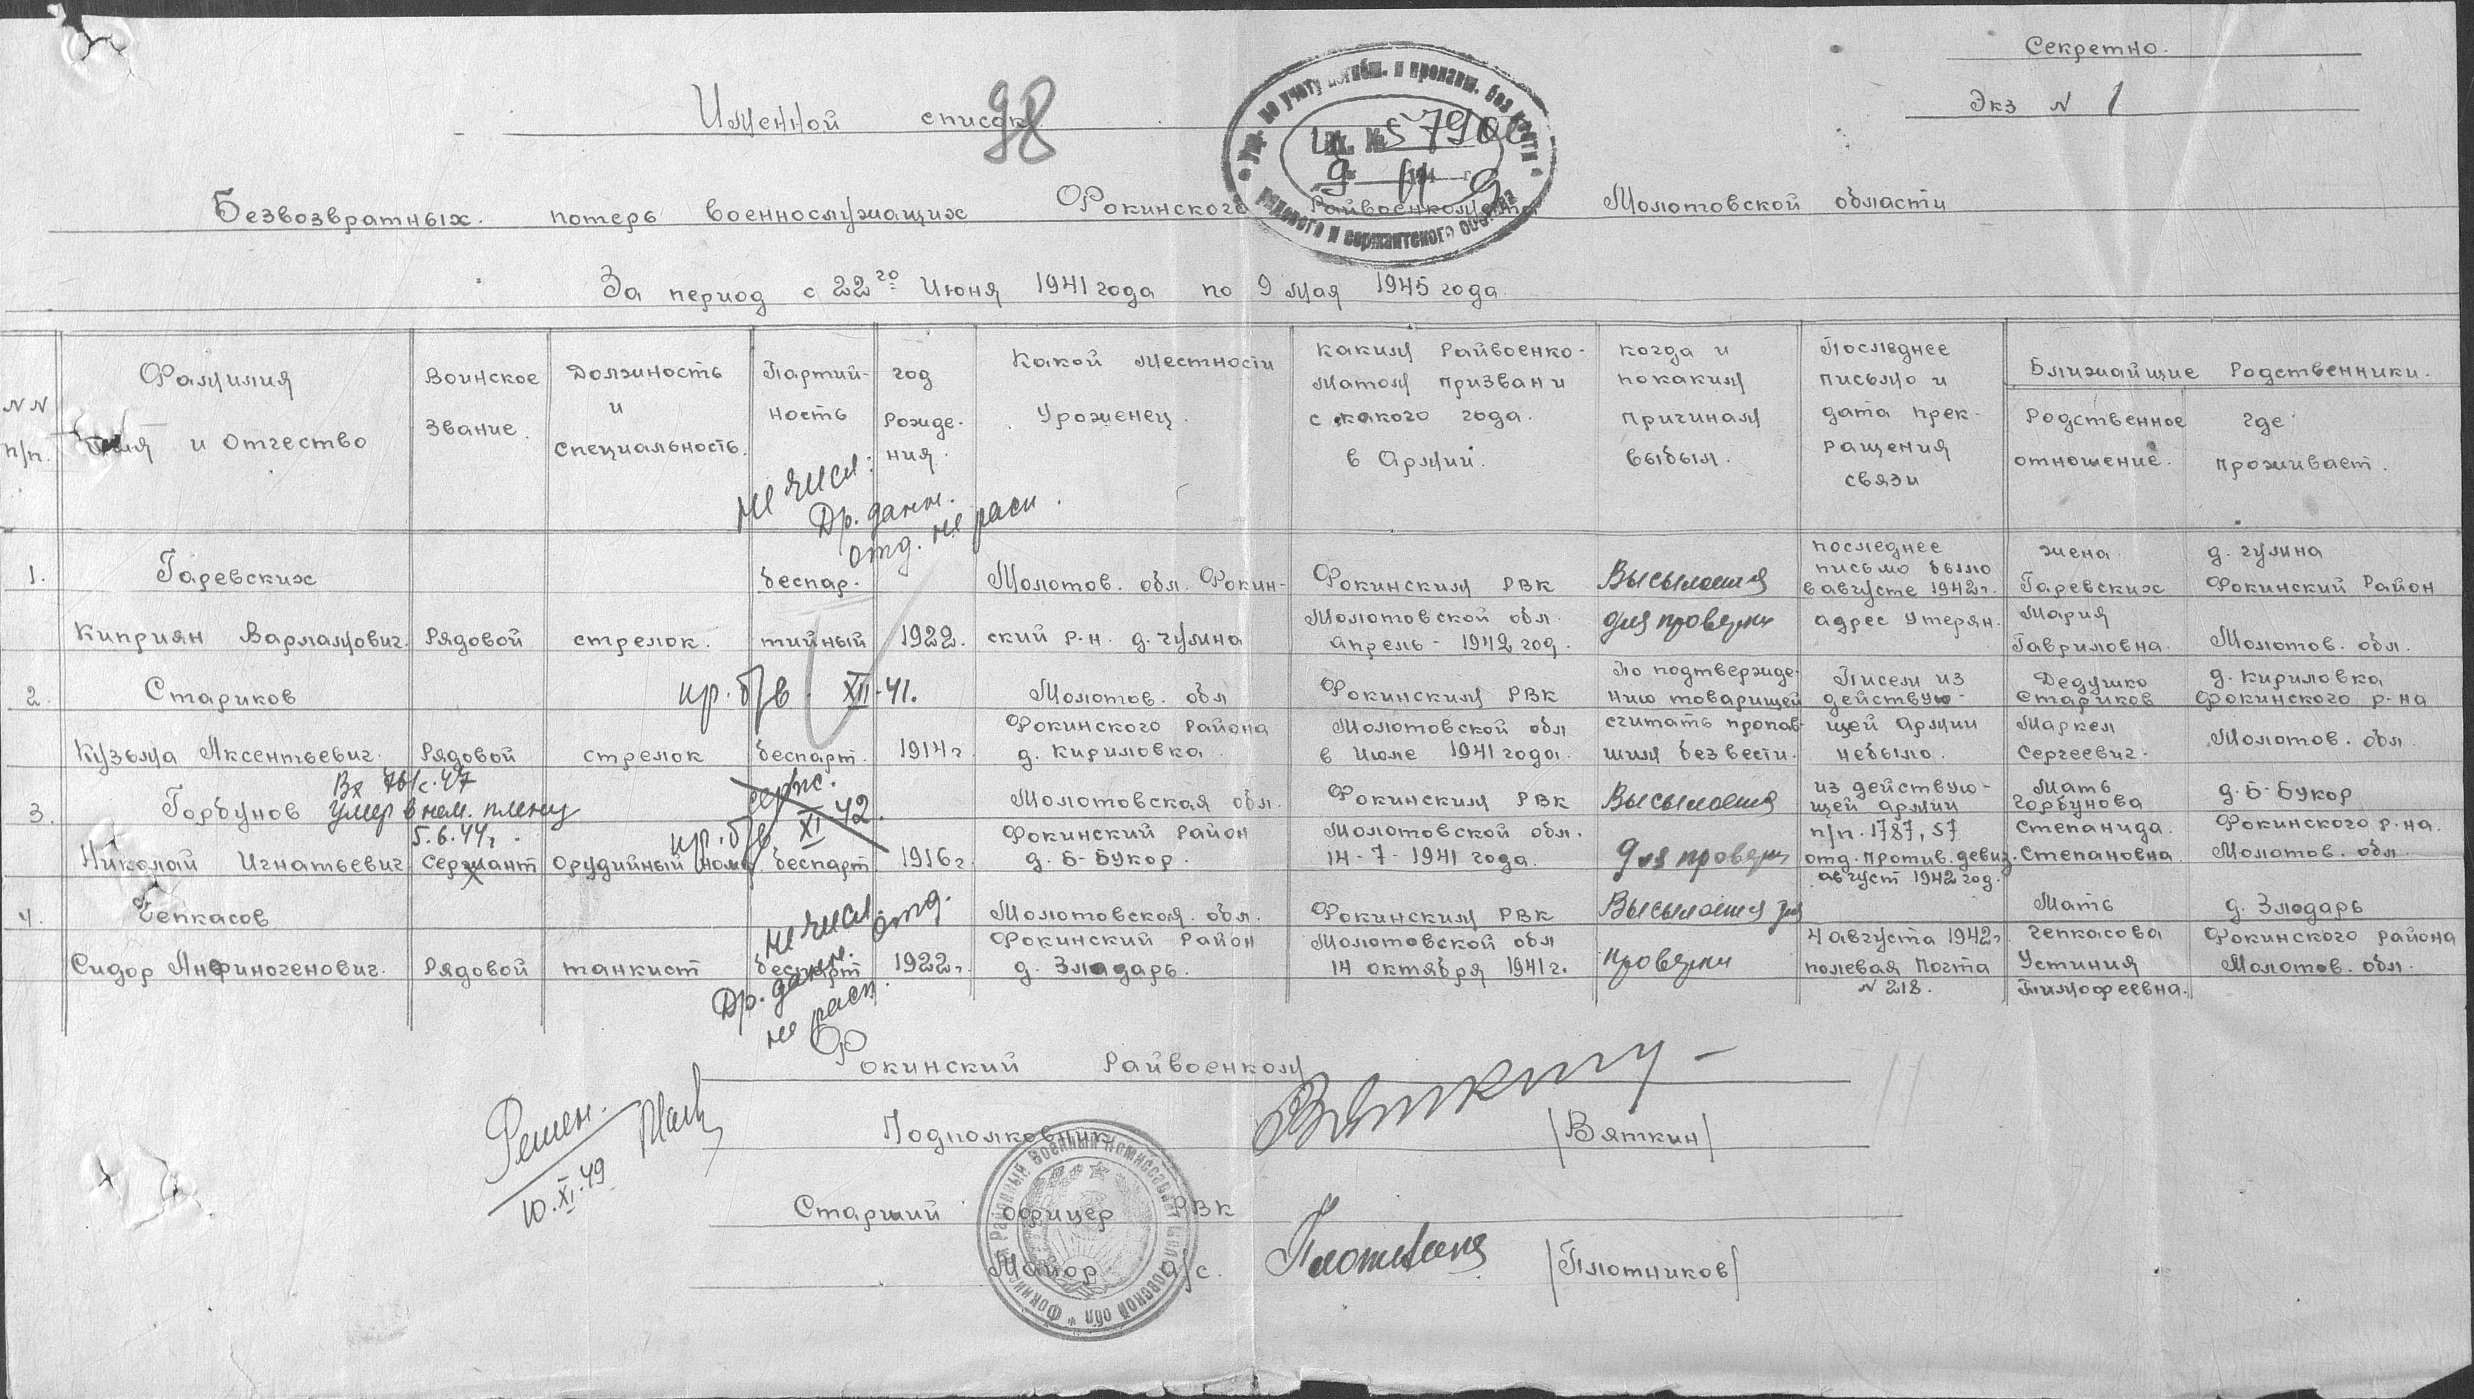 Секретно.
Экз № 1
Именной список
98
Упр. по учету погибш. и пропавш. без вести
рядового и сержантского состава
Вх. № 57900
9 11 194 9
Безвозвратных потерь военнослужащих Фокинского Райвоенкомата Молотовской области
За период с 22го Июня 1941 года по 9 мая 1945 года.
NN п/п.
Фамилия имя и отчество
Воинское звание.
Должность и специальность.
Партийность
год рождения.
Какой местности уроженец.
каким Райвоенкоматом призван и с какого года. в Армии.
когда и покаким причинам выбыл.
Последнее письмо и дата прекращения связи
Ближайшие Родственники.
Родственное отношение.
где проживает.
не числ.
Др. данн.
отд. не расп.
1. Гаревских
Киприян Варламович.
Рядовой
стрелок.
беспар-
тийный
1922.
Молотов. обл. Фокин-
ский р.н. д. гулина
Фокинским РВК
Молотовской обл.
апрель - 1942 год.
Высылается
для проверки
последнее
письмо было
в августе 1942 г.
адрес утерян.
жена
Гаревских
Мария
Гавриловна.
д. гулина
Фокинский Район
Молотов. обл.
2. Стариков
Кузьма Аксентьевич.
Рядовой
стрелок
пр. б/в. XII-41.
беспарт.
1914 г.
Молотов. обл
Фокинского Района
д. кириловка.
Фокинским РВК
Молотовской обл
в Июле 1941 года.
По подтвержде-
нию товарищей
считать пропав-
шим без вести.
Писем из
действую-
щей армии
небыло.
Дедушко
Стариков
Маркел
Сергеевич.
д. кириловка
Фокинского р-на
Молотов. обл.
Вх 761с-47
3. Горбунов
умер в нем. плену
5.6.44г.
Николай Игнатьевич
Сержант
Орудийный номер
серж.
пр. б/в XI-42.
беспарт
1916 г.
Молотовская обл.
Фокинский Район
д. Б-Букор.
Фокинским РВК
Молотовской обл.
14-7-1941 года.
Высылается
для проверки
из действую-
щей армии
п/п. 1787, 57
отд. против. девиз.
август 1942 год.
Мать
горбунова
Степанида.
Степановна.
д. Б-Букор
Фокинского р.на.
Молотов. обл.
4. Чепкасов
Сидор Анфиногенович.
Рядовой
танкист
не числ
отд.
беспарт
Др. данн.
не расп.
1922 г.
Молотовская. обл.
Фокинский Район
д. Злодарь.
Фокинским РВК
Молотовской обл
14 октября 1941 г.
Высылается для
проверки
4 августа 1942 г
полевая почта
№ 218.
Мать
чепкасова
Устиния
Тимофеевна.
д. Злодарь
Фокинского района
Молотов. обл.
Фокинский Райвоенком
Подполковник
/Вяткин/
Решен.
10.XI.49
Старший офицер РВК
Майор а/с.
/Плотников/
Фокинский Районный Военный Комиссариат Молотовской обл